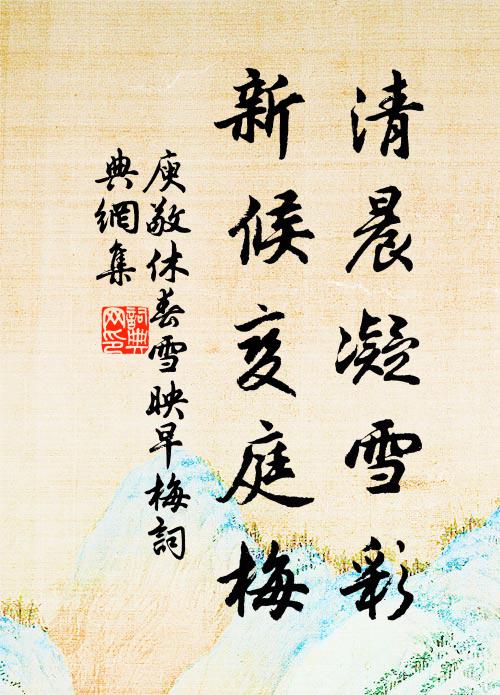 清晨凝雪彩
新候变庭梅
庾敬休春雪映早梅詞
典網集
詞典网印